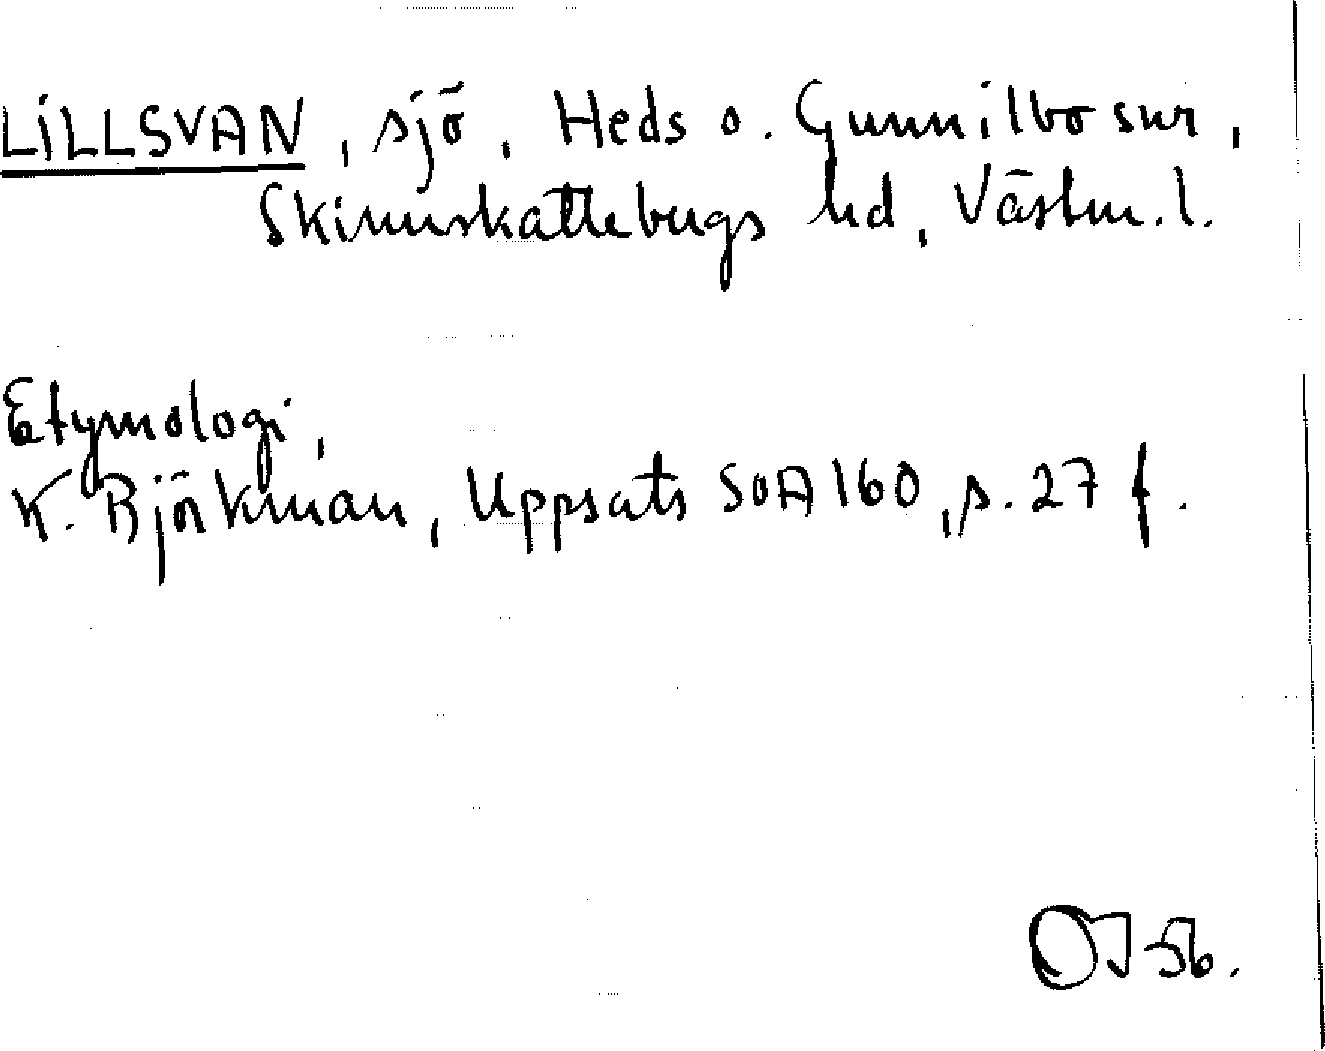 LILLSVAN, sjö, Heds o. Gunnilbo snr,
Skinnskattebergs hd, Västm. l.
Etymologi,
K. Björkman, Uppsats SOA 160, s. 27 f.
OJ 56.